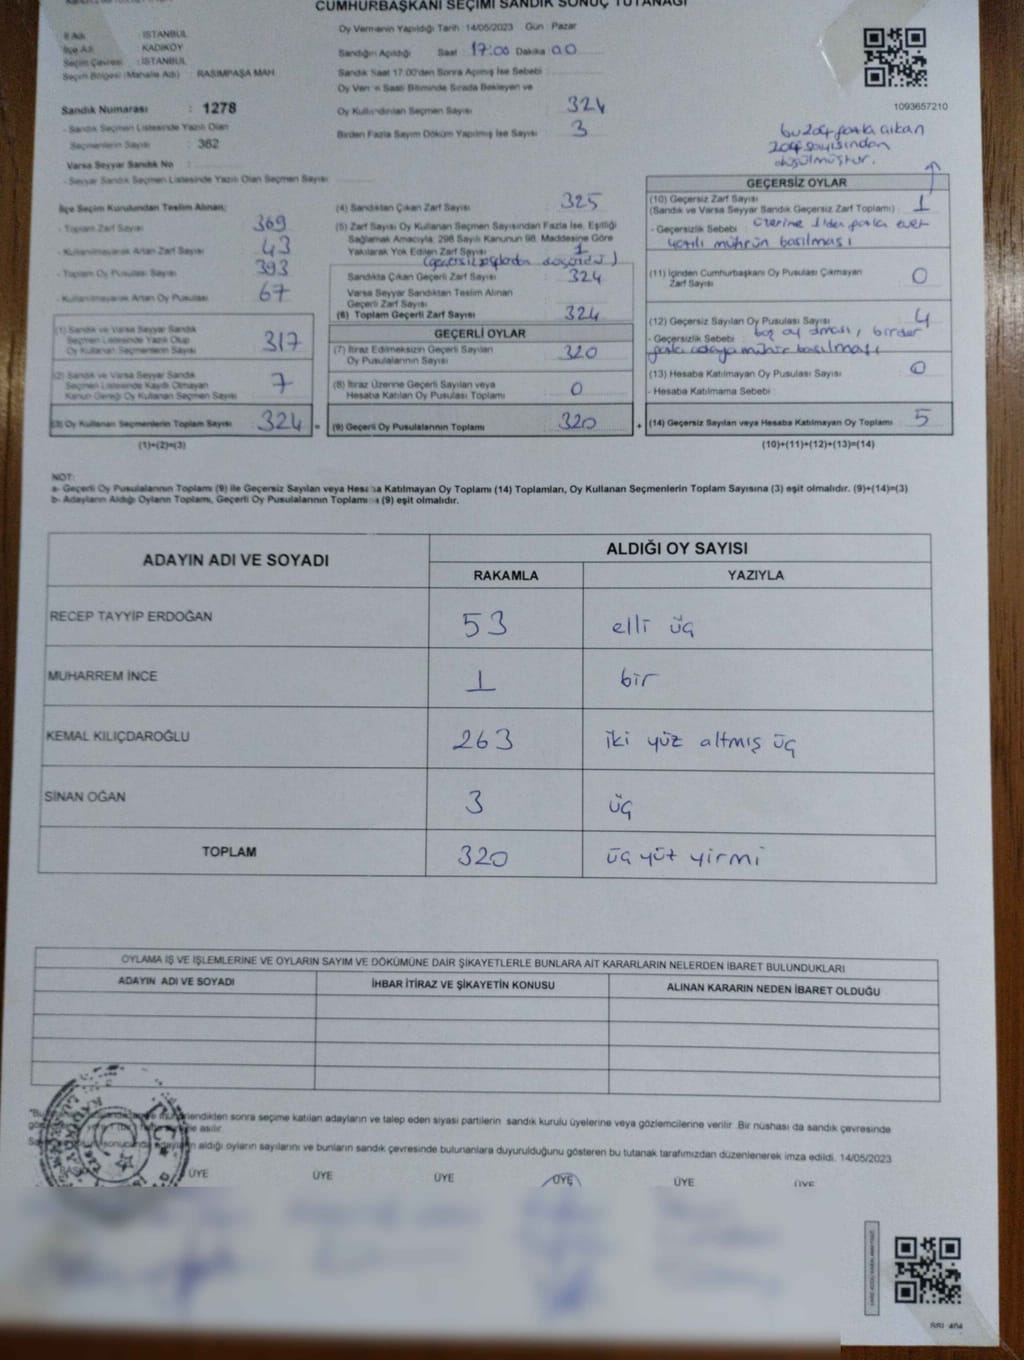 CUMHURBAŞKANI SEÇİMİ SANDIK SONUÇ TUTANAĞI
İl Adı : İSTANBUL
İlçe Adı : KADIKÖY
Seçim Çevresi : İSTANBUL
Seçim Bölgesi (Mahalle Adı) : RASIMPAŞA MAH
Sandık Numarası : 1278
- Sandık Seçmen Listesinde Yazılı Olan
Seçmenlerin Sayısı : 362
Varsa Seyyar Sandık No :
- Seyyar Sandık Seçmen Listesinde Yazılı Olan Seçmen Sayısı
Oy Vermenin Yapıldığı Tarih :14/05/2023 Gün : Pazar
Sandığın Açıldığı Saat 17:00 Dakika 00
Sandık Saat 17:00'den Sonra Açılmış İse Sebebi :
Oy Ver n Saati Bitiminde Sırada Bekleyen ve
Oy Kullandırılan Seçmen Sayısı 324
Birden Fazla Sayım Döküm Yapılmış İse Sayısı 3
1093657210
bu zarf fazla çıkan
zarf sayısından
düşülmüştür.
İlçe Seçim Kurulundan Teslim Alınan;
- Toplam Zarf Sayısı 369
- Kullanılmayarak Artan Zarf Sayısı 43
- Toplam Oy Pusulası Sayısı 393
- Kullanılmayarak Artan Oy Pusulası 67
(1) Sandık ve Varsa Seyyar Sandık
Seçmen Listesinde Yazılı Olup
Oy Kullanan Seçmenlerin Sayısı 317
(2) Sandık ve Varsa Seyyar Sandık
Seçmen Listesinde Kayıtlı Olmayan
Kanun Gereği Oy Kullanan Seçmen Sayısı 7
(3) Oy Kullanan Seçmenlerin Toplam Sayısı 324 =
(1)+(2)=(3)
(4) Sandıktan Çıkan Zarf Sayısı 325
(5) Zarf Sayısı Oy Kullanan Seçmen Sayısından Fazla İse, Eşitliği
Sağlamak Amacıyla; 298 Sayılı Kanunun 98. Maddesine Göre
Yakılarak Yok Edilen Zarf Sayısı 1
Sandıkta Çıkan Geçerli Zarf Sayısı 324
Varsa Seyyar Sandıktan Teslim Alınan
Geçerli Zarf Sayısı
(6) Toplam Geçerli Zarf Sayısı 324
GEÇERLİ OYLAR
(7) İtiraz Edilmeksizin Geçerli Sayılan
Oy Pusulalarının Sayısı 320
(8) İtiraz Üzerine Geçerli Sayılan veya
Hesaba Katılan Oy Pusulası Toplamı 0
(9) Geçerli Oy Pusulalarının Toplamı 320 +
GEÇERSİZ OYLAR
(10) Geçersiz Zarf Sayısı
(Sandık ve Varsa Seyyar Sandık Geçersiz Zarf Toplamı) 1
- Geçersizlik Sebebi : üzerine 1'den fazla evet
yazılı mührün basılması
(11) İçinden Cumhurbaşkanı Oy Pusulası Çıkmayan
Zarf Sayısı 0
(12) Geçersiz Sayılan Oy Pusulası Sayısı 4
- Geçersizlik Sebebi : boş oy olması, birden
fazla adaya mühür basılması
(13) Hesaba Katılmayan Oy Pusulası Sayısı 0
- Hesaba Katılmama Sebebi :
(14) Geçersiz Sayılan veya Hesaba Katılmayan Oy Toplamı 5
(10)+(11)+(12)+(13)=(14)
NOT:
a- Geçerli Oy Pusulalarının Toplamı (9) ile Geçersiz Sayılan veya Hesaba Katılmayan Oy Toplamı (14) Toplamları, Oy Kullanan Seçmenlerin Toplam Sayısına (3) eşit olmalıdır. (9)+(14)=(3)
b- Adayların Aldığı Oyların Toplamı, Geçerli Oy Pusulalarının Toplamına (9) eşit olmalıdır.
ADAYIN ADI VE SOYADI ALDIĞI OY SAYISI
RAKAMLA YAZIYLA
RECEP TAYYİP ERDOĞAN 53 elli üç
MUHARREM İNCE 1 bir
KEMAL KILIÇDAROĞLU 263 iki yüz altmış üç
SİNAN OĞAN 3 üç
TOPLAM 320 üç yüz yirmi
OYLAMA İŞ VE İŞLEMLERİNE VE OYLARIN SAYIM VE DÖKÜMÜNE DAİR ŞİKAYETLERLE BUNLARA AİT KARARLARIN NELERDEN İBARET BULUNDUKLARI
ADAYIN ADI VE SOYADI İHBAR İTİRAZ VE ŞİKAYETİN KONUSU ALINAN KARARIN NEDEN İBARET OLDUĞU
lendikten sonra seçime katılan adayların ve talep eden siyasi partilerin sandık kurulu üyelerine veya gözlemcilerine verilir. Bir nüshası da sandık çevresinde
asılır.
aldığı oyların sayılarını ve bunların sandık çevresinde bulunanlara duyurulduğunu gösteren bu tutanak tarafımızdan düzenlenerek imza edildi. 14/05/2023
ÜYE ÜYE ÜYE ÜYE ÜYE ÜYE